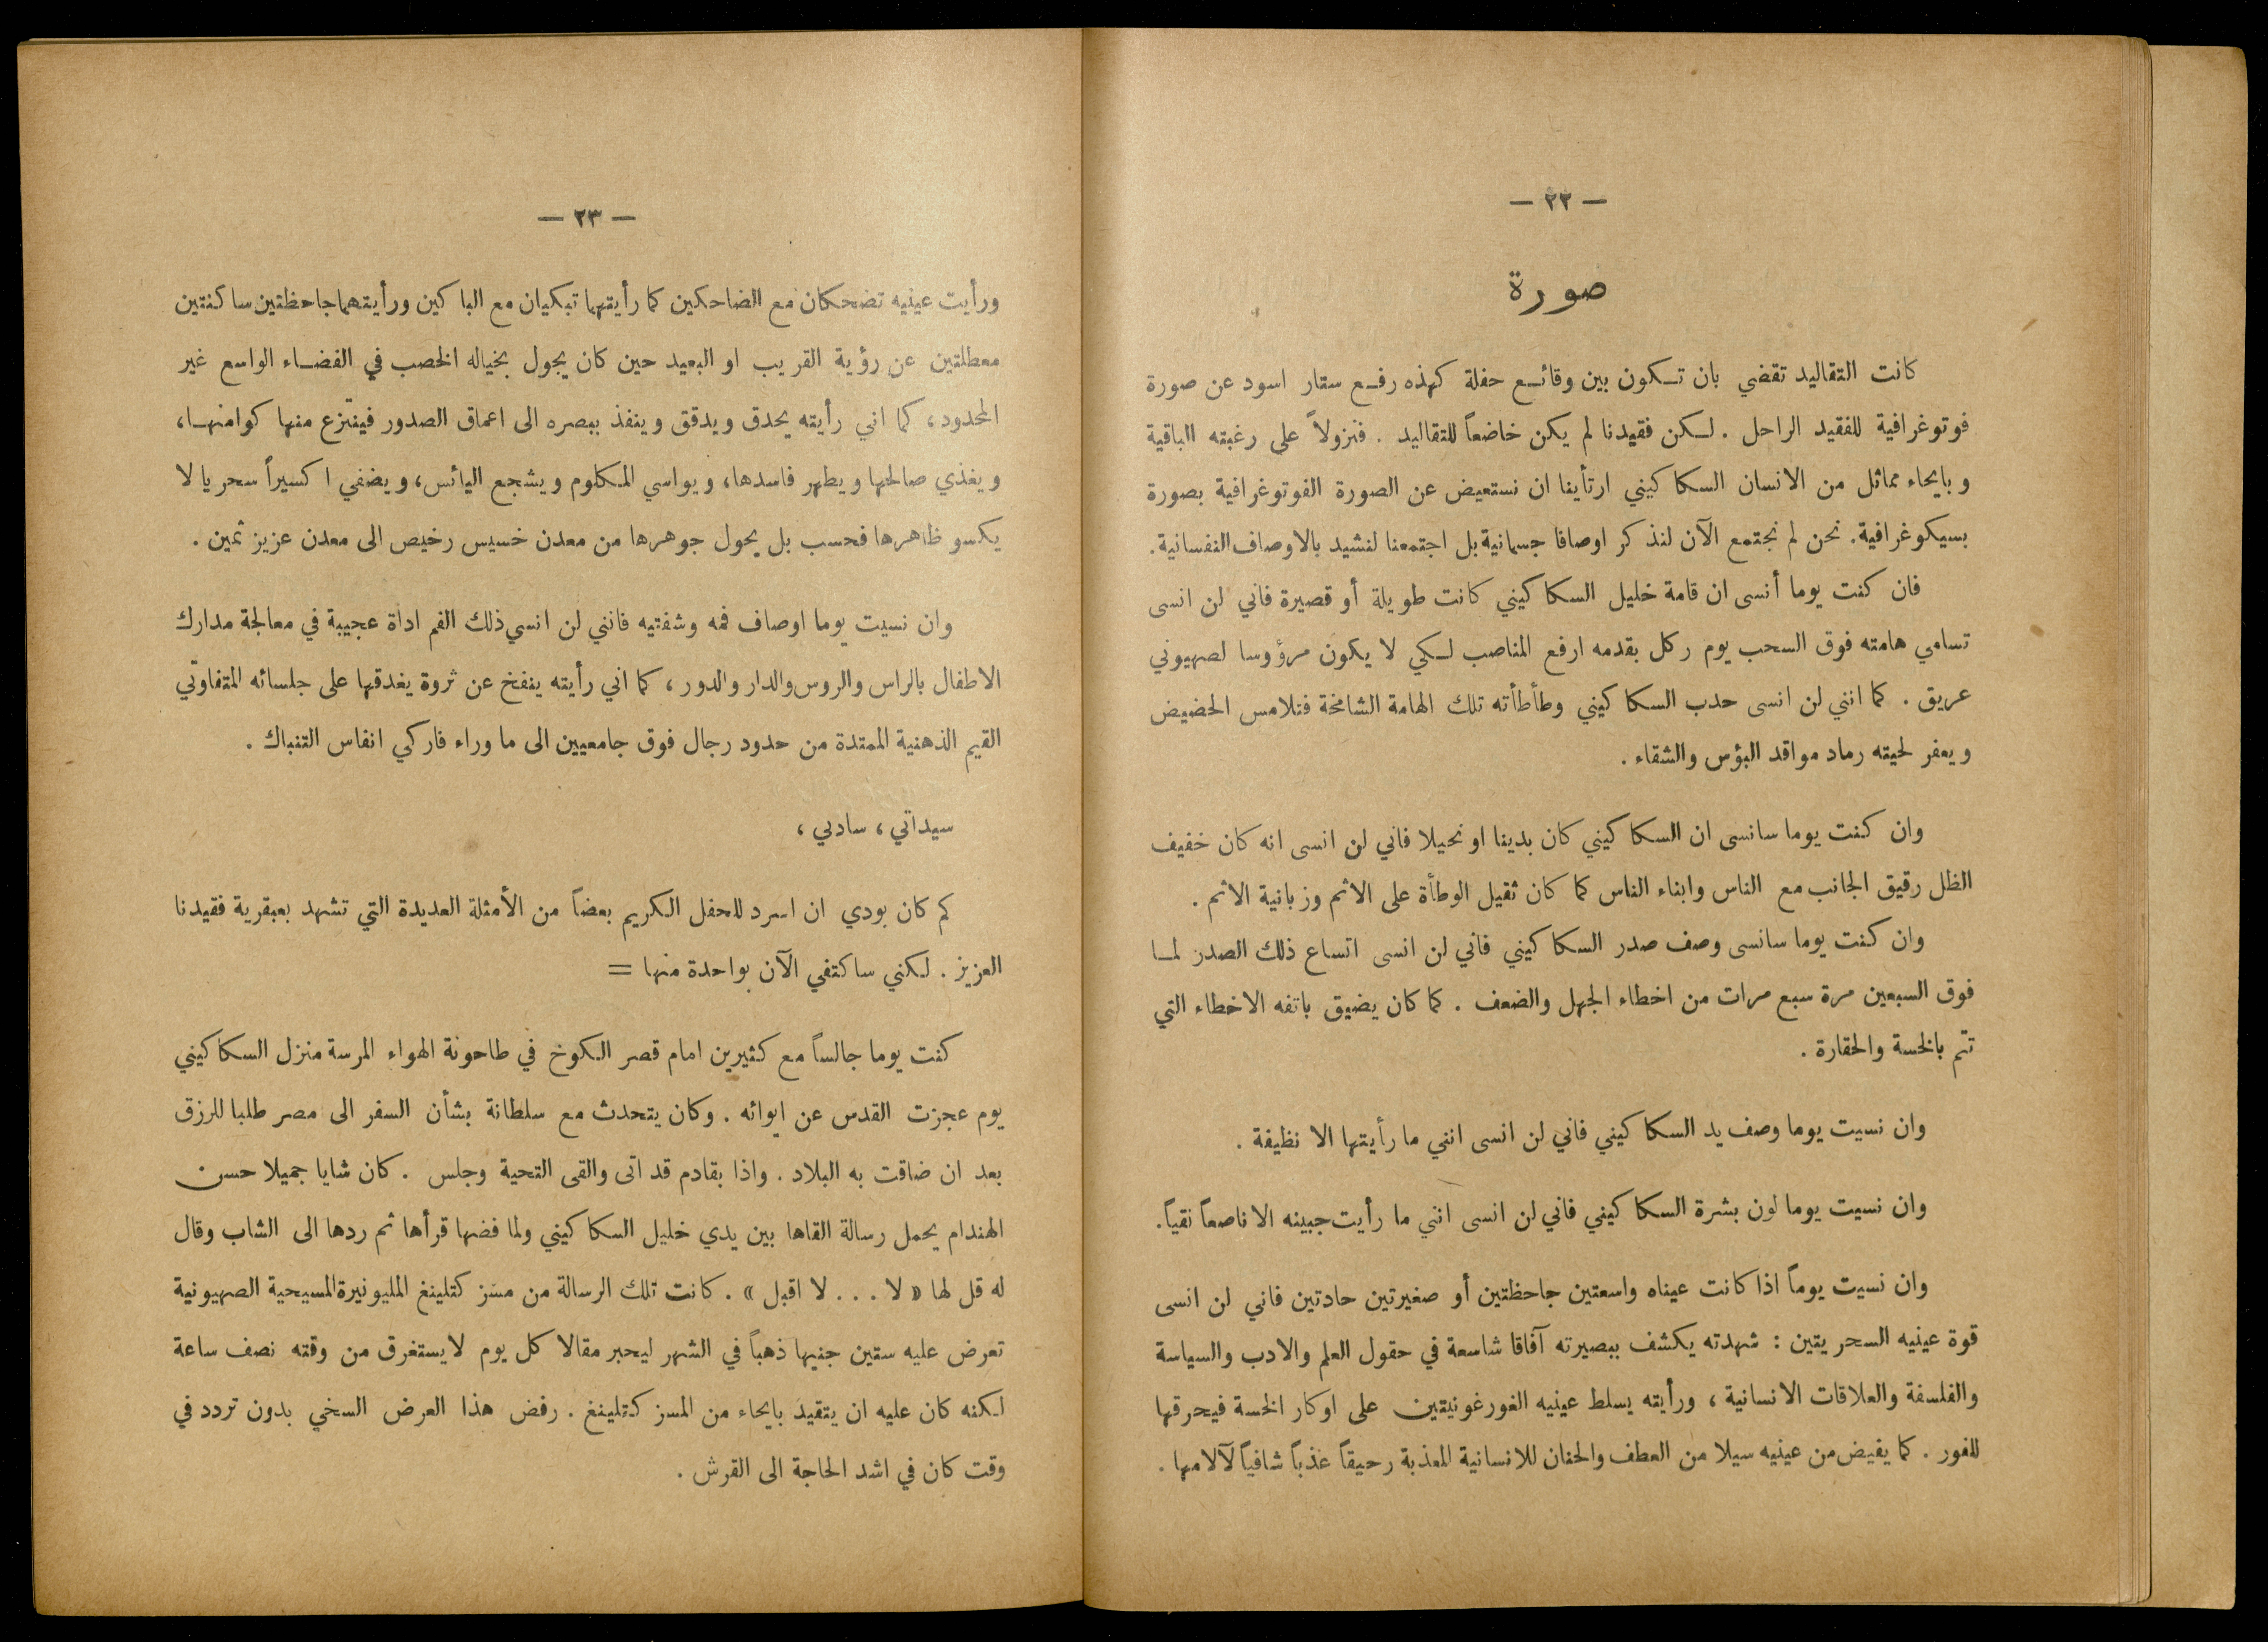 — ٢٢ —
صورة
كانت التقاليد تقضي بان تكون بين وقائع حفلة كهذه رفع ستار اسود عن صورة
فوتوغرافية للفقيد الراحل . لكن فقيدنا لم يكن خاضعاً للتقاليد . فنزولاً على رغبته الباقية
وبايحاء مماثل من الانسان السكاكيني ارتأينا ان نستعيض عن الصورة الفوتوغرافية بصورة
بسيكوغرافية. نحن لم نجتمع الآن لنذكر اوصافا جسمانية بل اجتمعنا لنشيد بالاوصاف النفسانية.
فان كنت يوما أنسى ان قامة خليل السكاكيني كانت طويلة أو قصيرة فاني لن انسى
تسامي هامته فوق السحب يوم ركل بقدمه ارفع المناصب لكي لا يكون مرؤوسا لصهيوني
عريق . كما انني لن انسى حدب السكاكيني وطأطأته تلك الهامة الشامخة فتلامس الحضيض
ويعفر لحيته رماد مواقد البؤس والشقاء .
وان كنت يوما سانسى ان السكاكيني كان بدينا او نحيلا فاني لن انسى انه كان خفيف
الظل رقيق الجانب مع الناس وابناء الناس كما كان ثقيل الوطأة على الاثم وزبانية الاثم .
وان كنت يوما سانسى وصف صدر السكاكيني فاني لن انسى اتساع ذلك الصدر لما
فوق السبعين مرة سبع مرات من اخطاء الجهل والضعف . كما كان يضيق باتفه الاخطاء التي
تتم بالخسة والحقارة .
وان نسيت يوما وصف يد السكاكيني فاني لن انسى انني ما رأيتها الا نظيفة .
وان نسيت يوما لون بشرة السكاكيني فاني لن انسى انني ما رأيت جبينه الا ناصعاً نقياً.
وان نسيت يوماً اذا كانت عيناه واسعتين جاحظتين أو صغيرتين حادتين فاني لن انسى
قوة عينيه السحريتين : شهدته يكشف ببصيرته آفاقا شاسعة في حقول العلم والادب والسياسة
والفلسفة والعلاقات الانسانية ، ورأيته يسلط عينيه الغورغونيتين على اوكار الخسة فيحرقها
للفور . كما يفيض من عينيه سيلا من العطف والحنان للانسانية المعذبة رحيقاً عذباً شافياً لآلامها .
— ٢٣ —
ورأيت عينيه تضحكان مع الضاحكين كما رأيتهما تبكيان مع الباكين ورأيتهما جاحظتين ساكنتين
معطلتين عن رؤية القريب او البعيد حين كان يجول بخياله الخصب في الفضاء الواسع غير
المحدود ، كما اني رأيته يحدق ويدقق وينفذ ببصره الى اعماق الصدور فينتزع منها كوامنها ،
ويغذي صالحها ويطهر فاسدها ، ويواسي المكلوم ويشجع اليائس ، ويضفي اكسيراً سحريا لا
يكسو ظاهرها فحسب بل يحول جوهرها من معدن خسيس رخيص الى معدن عزيز ثمين .
وان نسيت يوما اوصاف فمه وشفتيه فانني لن انسي ذلك الفم اداة عجيبة في معالجة مدارك
الاطفال بالراس والروس والدار والدور ، كما اني رأيته ينفخ عن ثروة يغدقها على جلسائه المتفاوتي
القيم الذهنية الممتدة من حدود رجال فوق جامعيين الى ما وراء فاركي انفاس التنباك .
سيداتي ، سادتي ،
كم كان بودي ان اسرد للحفل الكريم بعضاً من الأمثلة العديدة التي تشهد بعبقرية فقيدنا
العزيز . لكني ساكتفي الآن بواحدة منها =
كنت يوما جالساً مع كثيرين امام قصر الكوخ في طاحونة الهواء المرسة منزل السكاكيني
يوم عجزت القدس عن ايوائه . وكان يتحدث مع سلطانة بشأن السفر الى مصر طلبا للرزق
بعد ان ضاقت به البلاد . واذا بقادم قد اتى والقى التحية وجلس . كان شابا جميلا حسن
الهندام يحمل رسالة القاها بين يدي خليل السكاكيني ولما فضها قرأها ثم ردها الى الشاب وقال
له قل لها « لا . . . لا اقبل » . كانت تلك الرسالة من مسز كتلينغ المليونيرة المسيحية الصهيونية
تعرض عليه ستين جنيها ذهباً في الشهر ليحبر مقالا كل يوم لا يستغرق من وقته نصف ساعة
لكنه كان عليه ان يتقيد بايحاء من المسز كتلينغ . رفض هذا العرض السخي بدون تردد في
وقت كان في اشد الحاجة الى القرش .